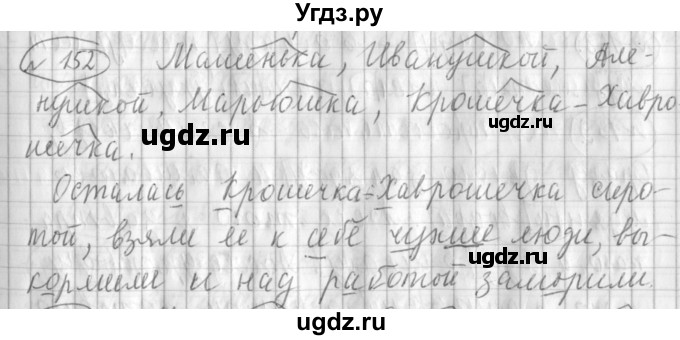 Угдз.ру
№ 152 Машенька, Иванушкой, Але-
нушкой, Марьюшка, Крошечка-Хавро-
шечка.
ugdz.ru
ugdz.ru
Осталась Крошечка-Хаврошечка сиро-
той, взяли ее к себе чужие люди, вы-
ugdz.ru
кормили и над работой заморили.
ugdz.ru
ugdz.ru